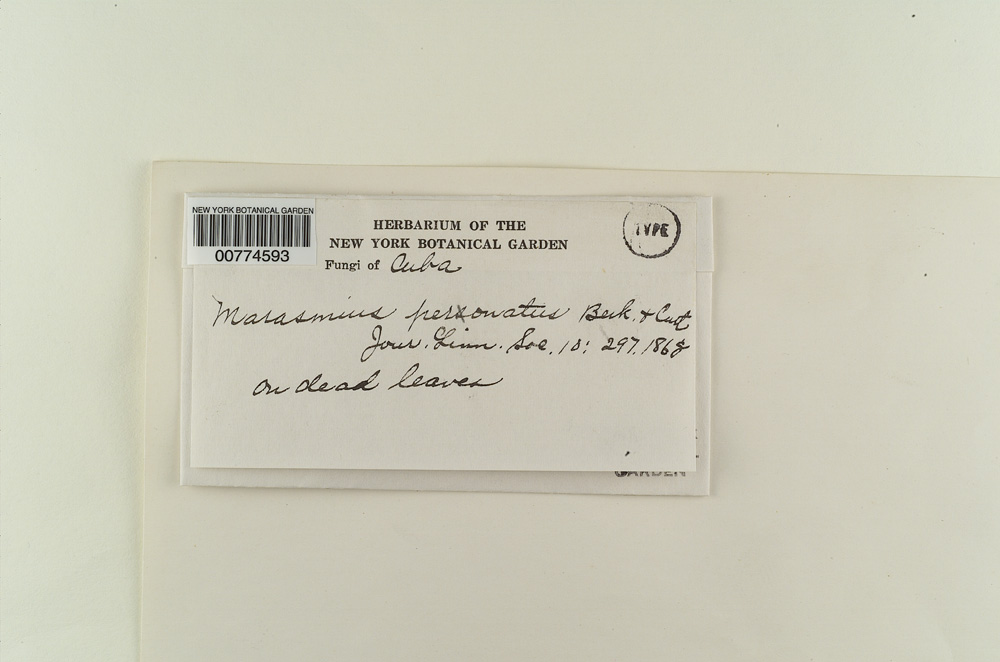 NEW YORK BOTANICAL GARDEN
00774593
HERBARIUM OF THE
NEW YORK BOTANICAL GARDEN
TYPE
Fungi of Cuba
Marasmius personatus Berk. & Curt
Jour. Linn. Soc. 10: 297. 1868
on dead leaves
GARDEN